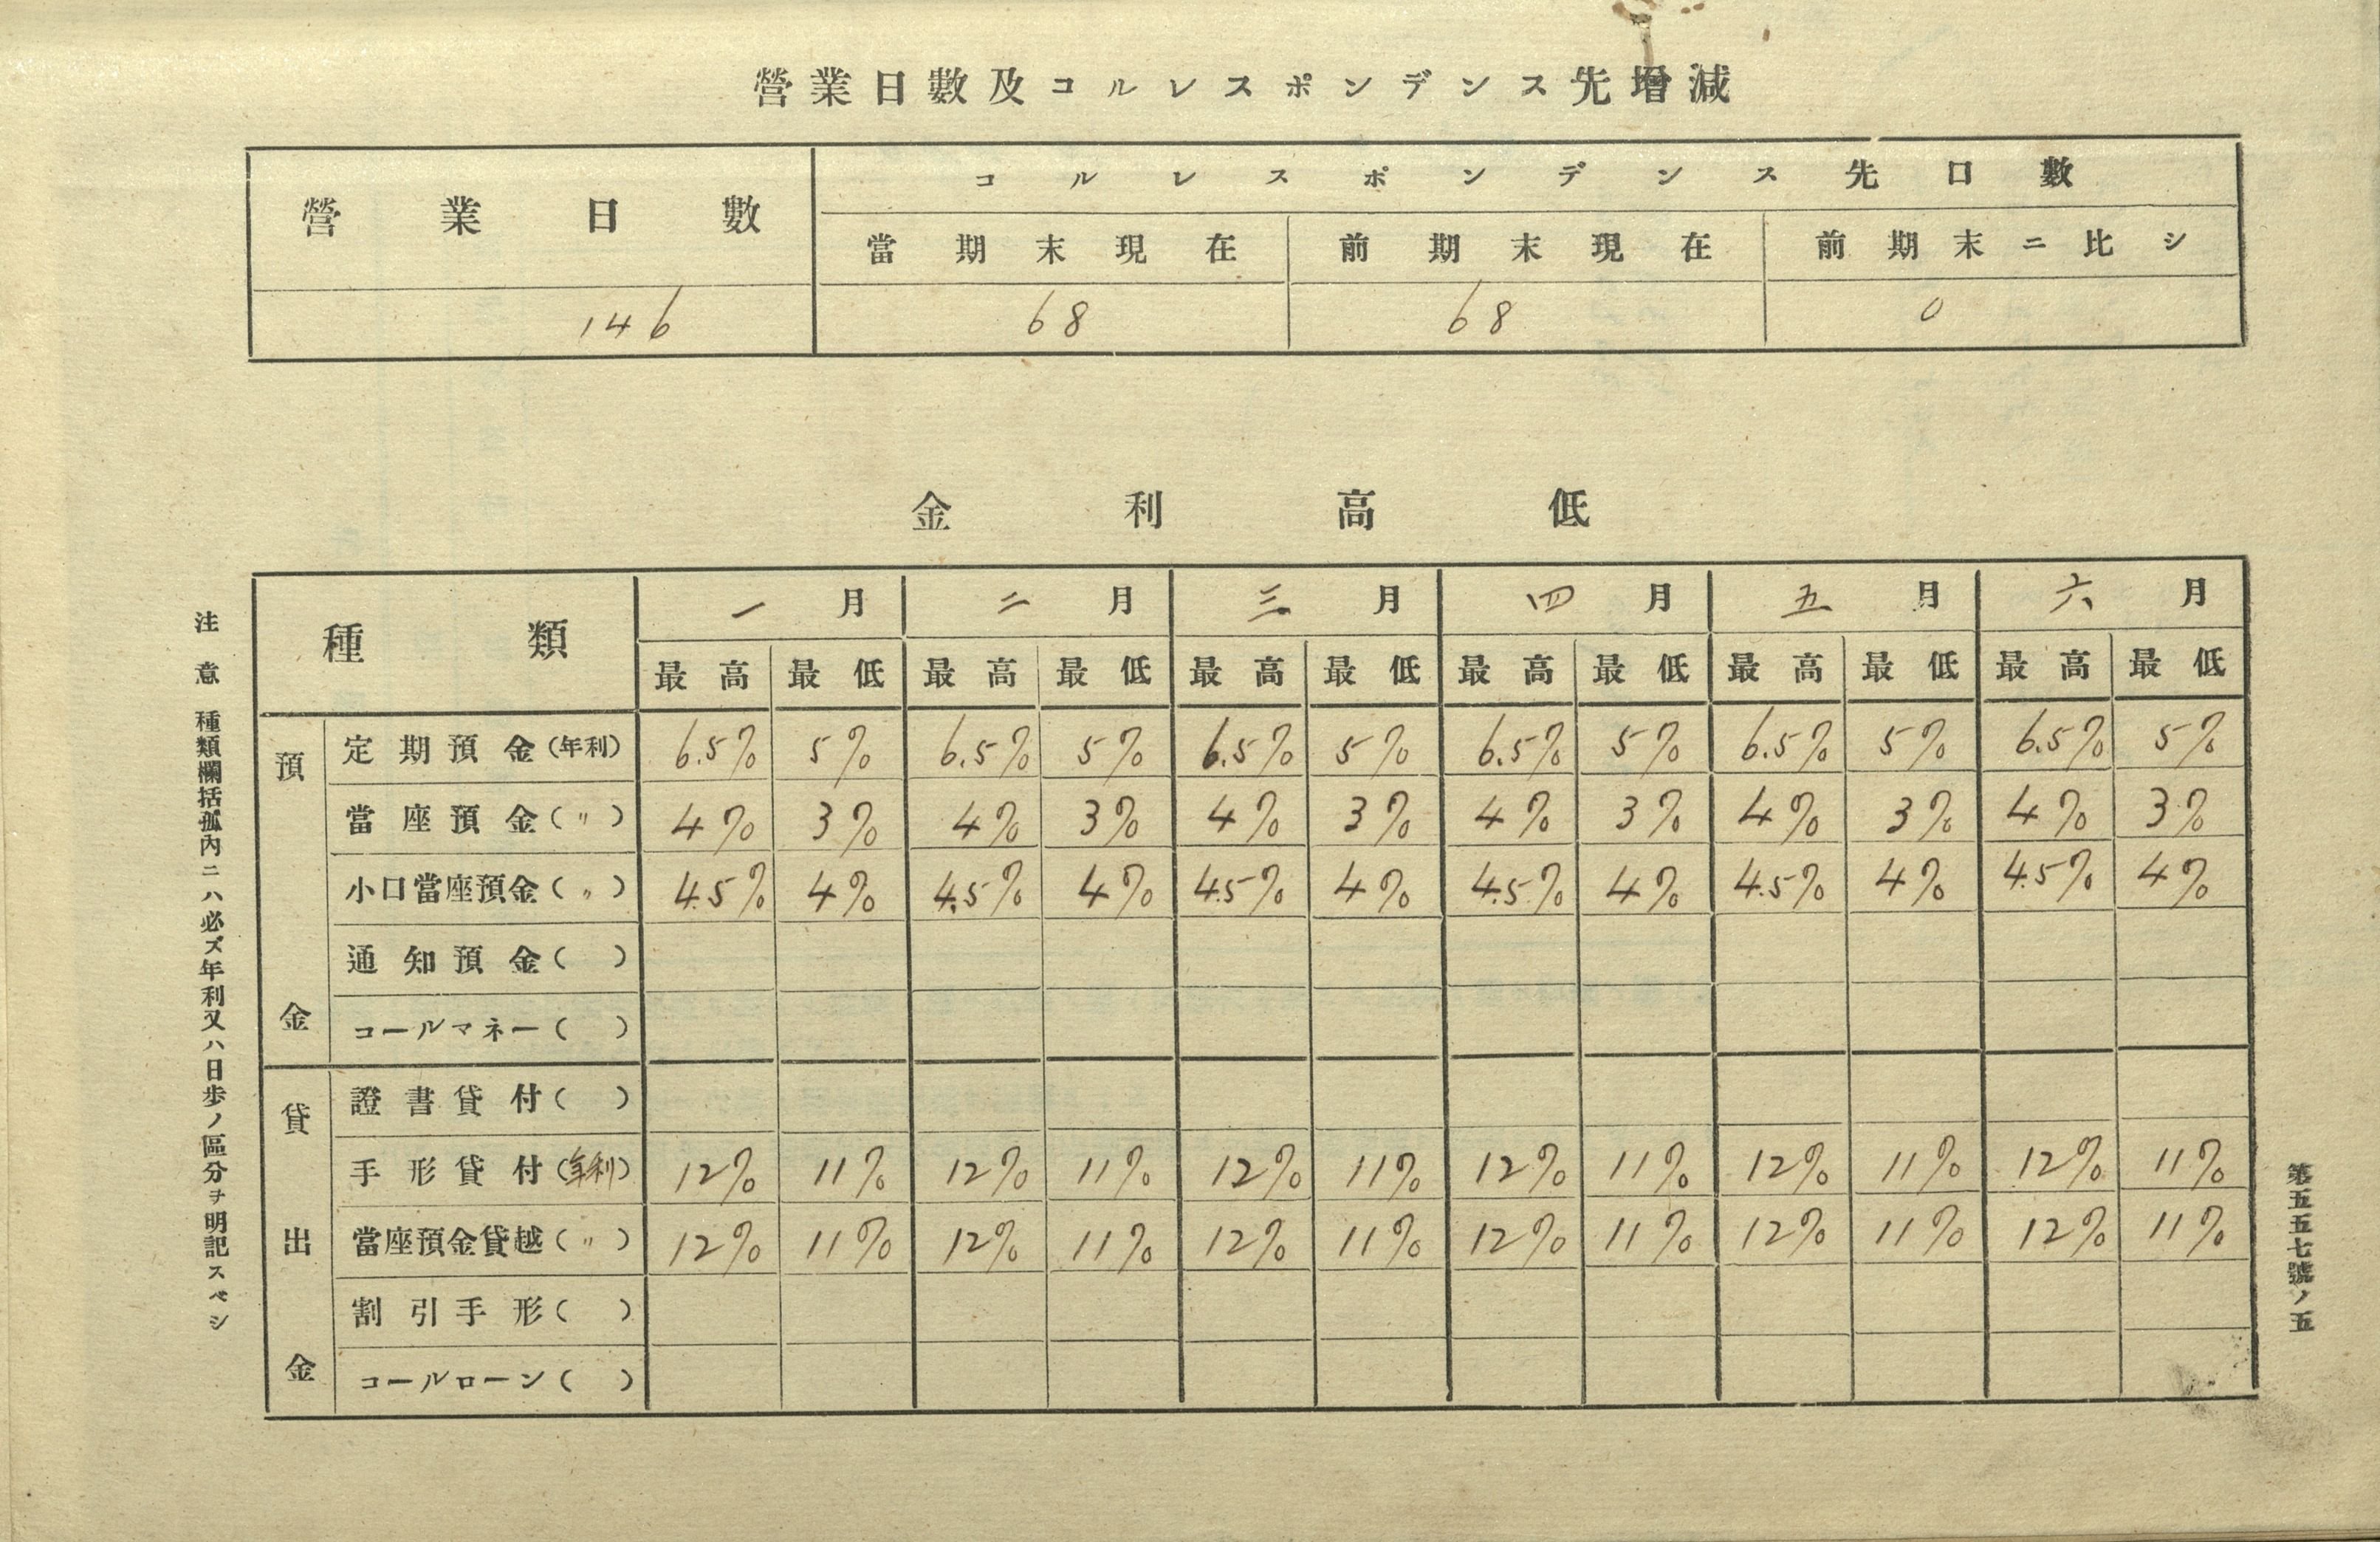 營業日數及コルレスポンデンス先增減
營業日數 コルレスポンデンス先口數
當期末現在 前期末現在 前期末ニ比シ
146 68 68 0
金利高低
種類 一月 二月 三月 四月 五月 六月
最高 最低 最高 最低 最高 最低 最高 最低 最高 最低 最高 最低
預金
定期預金(年利) 6.5% 5% 6.5% 5% 6.5% 5% 6.5% 5% 6.5% 5% 6.5% 5%
當座預金(〃) 4% 3% 4% 3% 4% 3% 4% 3% 4% 3% 4% 3%
小口當座預金(〃) 4.5% 4% 4.5% 4% 4.5% 4% 4.5% 4% 4.5% 4% 4.5% 4%
通知預金( )
コールマネー( )
貸出金
證書貸付( )
手形貸付(年利) 12% 11% 12% 11% 12% 11% 12% 11% 12% 11% 12% 11%
當座預金貸越(〃) 12% 11% 12% 11% 12% 11% 12% 11% 12% 11% 12% 11%
割引手形( )
コールローン( )
注意 種類欄括孤內ニハ必ズ年利又ハ日步ノ區分ヲ明記スベシ
第五五七號ノ五